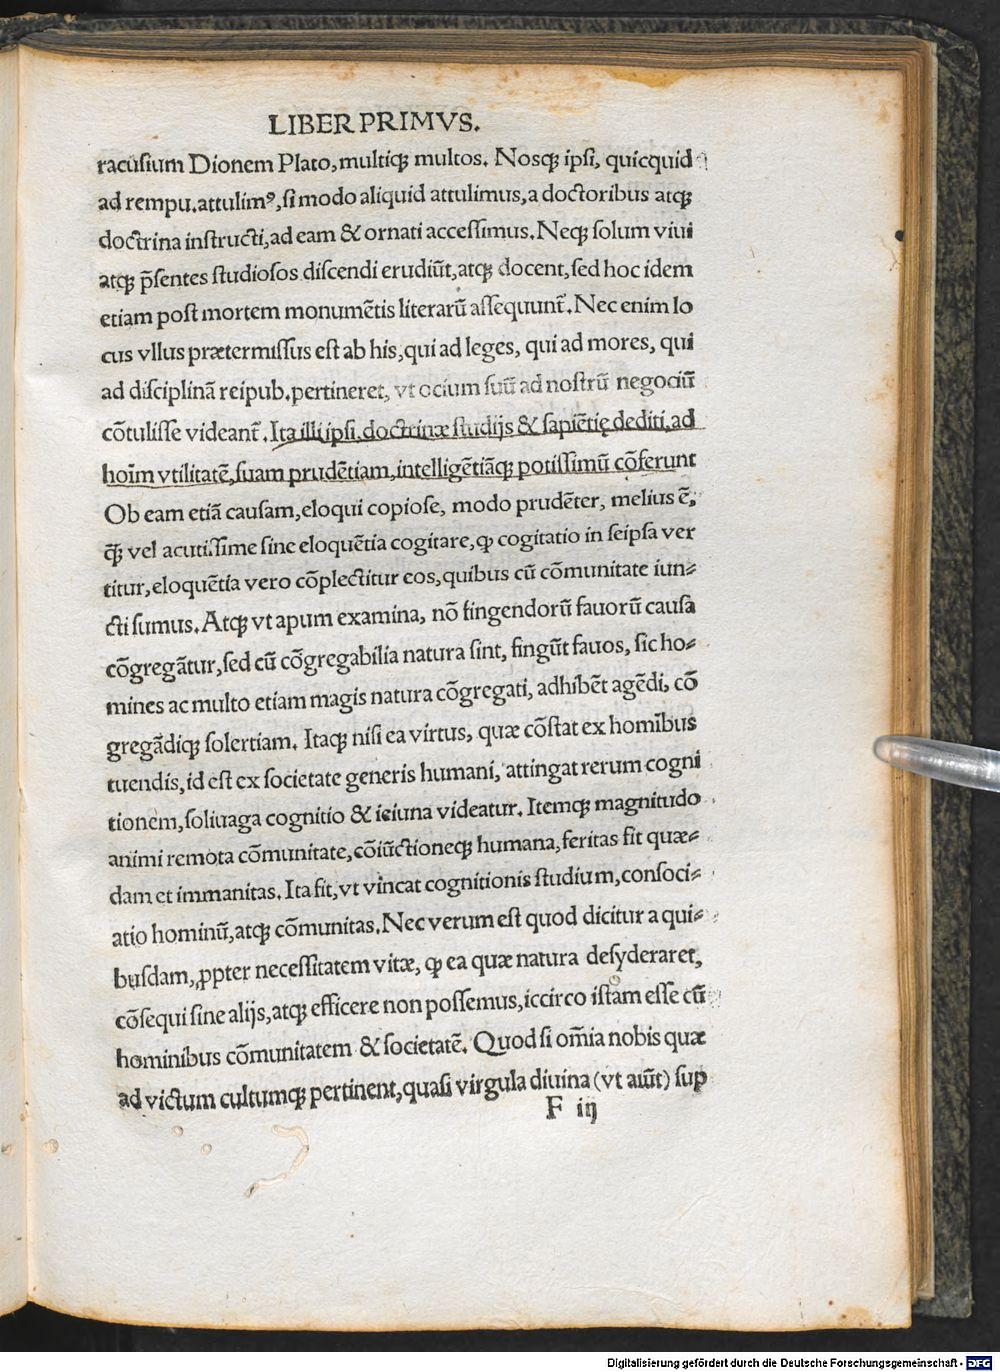 LIBER PRIMVS.
racusium Dionem Plato, multiqꝫ multos. Nosqꝫ ipsi, quicquid
ad rempu. attulimꝰ, si modo aliquid attulimus, a doctoribus atqꝫ
doctrina instructi, ad eam & ornati accessimus. Neqꝫ solum viui
atqꝫ p̄sentes studiosos discendi erudiūt, atqꝫ docent, sed hoc idem
etiam post mortem monumētis literarū assequunt̄. Nec enim lo
cus vllus prætermissus est ab his, qui ad leges, qui ad mores, qui
ad disciplinā reipub. pertineret, vt ocium suū ad nostrū negociū
cōtulisse videant̄. Ita illi ipsi, doctrinæ studijs & sapiētię dediti, ad
hoīm vtilitatē, suam prudētiam, intelligētiāqꝫ potissimū cōferunt
Ob eam etiā causam, eloqui copiose, modo prudēter, melius ē,
q̄ꝫ vel acutissime sine eloquētia cogitare, ꝙ cogitatio in seipsa ver
titur, eloquētia vero cōplectitur eos, quibus cū cōmunitate iun⸗
cti sumus. Atqꝫ vt apum examina, nō fingendorū fauorū causa
cōgregātur, sed cū cōgregabilia natura sint, fingūt fauos, sic ho⸗
mines ac multo etiam magis natura cōgregati, adhibēt agēdi, cō
gregādiqꝫ solertiam. Itaqꝫ nisi ea virtus, quæ cōstat ex homībus
tuendis, id est ex societate generis humani, attingat rerum cogni
tionem, soliuaga cognitio & ieiuna videatur. Itemqꝫ magnitudo
animi remota cōmunitate, cōiūctioneqꝫ humana, feritas sit quæ⸗
dam et immanitas. Ita fit, vt vincat cognitionis studium, consoci⸗
atio hominū, atqꝫ cōmunitas. Nec verum est quod dicitur a qui⸗
busdam, ꝓpter necessitatem vitæ, ꝙ ea quæ natura desyderaret,
cōsequi sine alijs, atqꝫ efficere non possemus, iccirco istam esse cū
hominibus cōmunitatem & societatē. Quod si om̄ia nobis quæ
ad victum cultumqꝫ pertinent, quasi virgula diuina (vt aiūt) sup
F iij
Digitalisierung gefördert durch die Deutsche Forschungsgemeinschaft - DFG